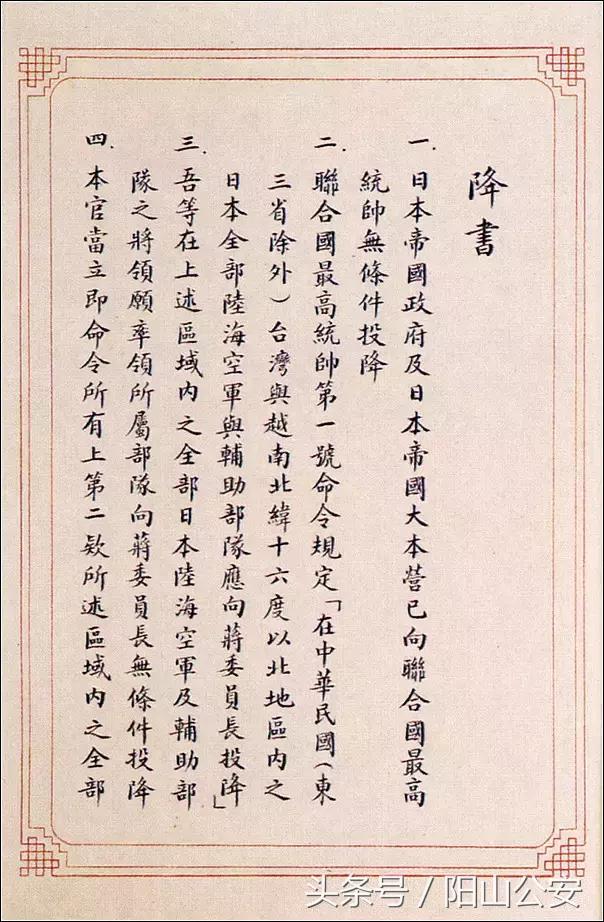 降書
一. 日本帝國政府及日本帝國大本營已向聯合國最高
統帥無條件投降
二. 聯合國最高統帥第一號命令規定「在中華民國(東
三省除外)台灣與越南北緯十六度以北地區內之
日本全部陸海空軍與輔助部隊應向蔣委員長投降」
三. 吾等在上述區域內之全部日本陸海空軍及輔助部
隊之將領願率領所屬部隊向蔣委員長無條件投降
四. 本官當立即命令所有上第二欵所述區域內之全部
头条号/阳山公安